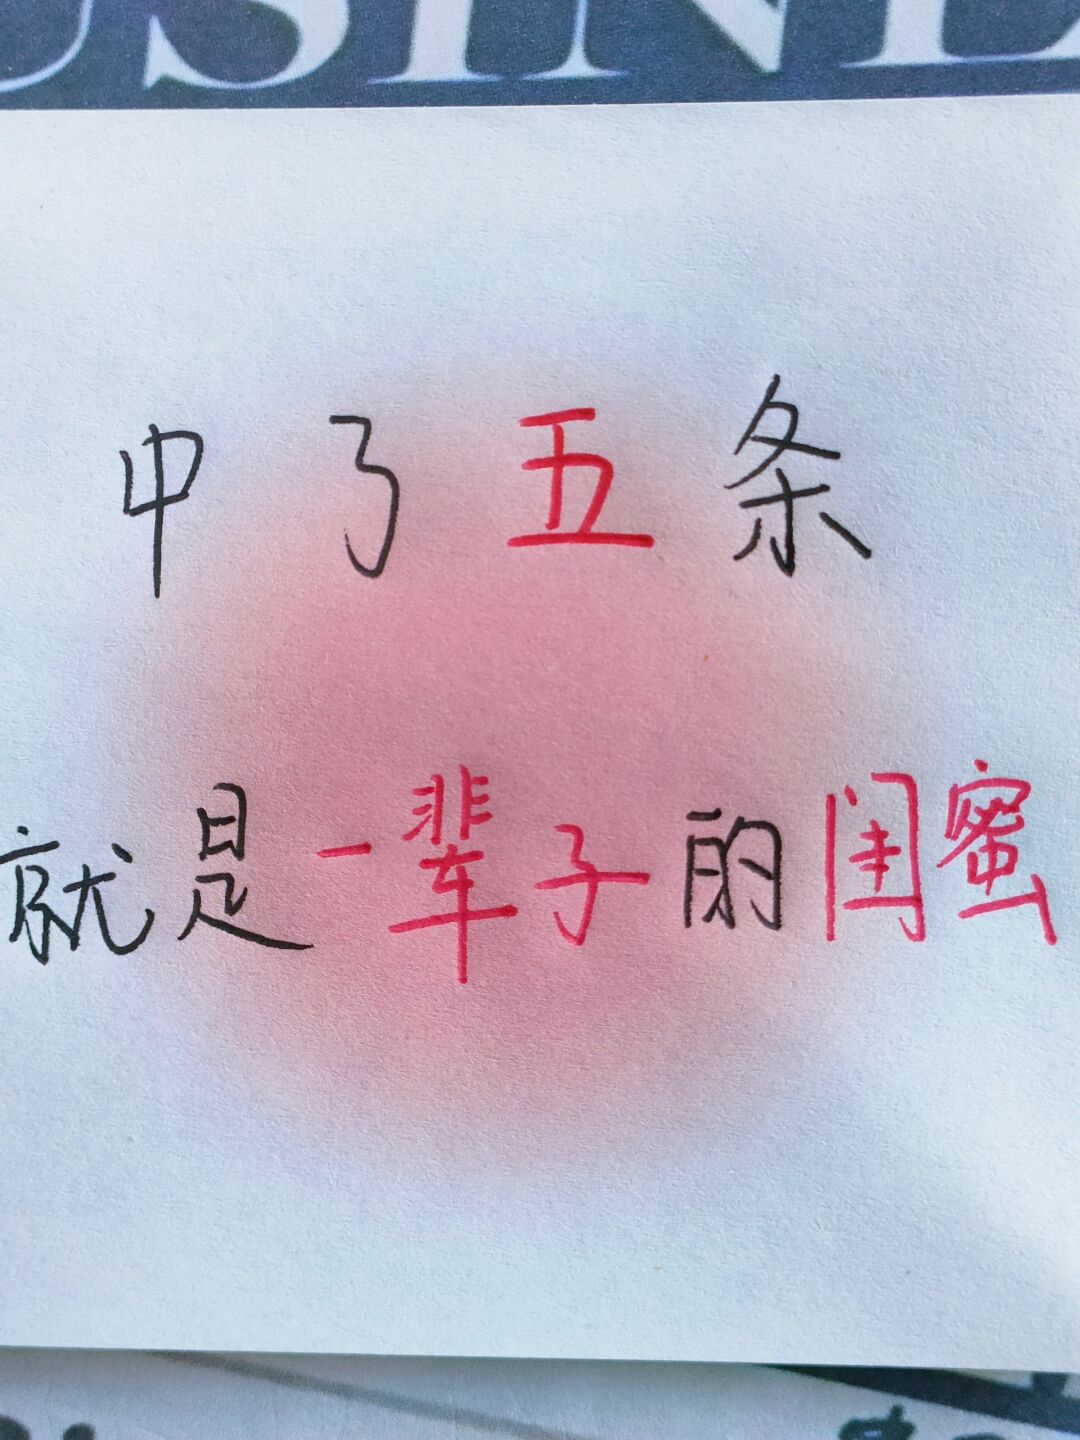 USINE
中了五条
就是一辈子的闺蜜